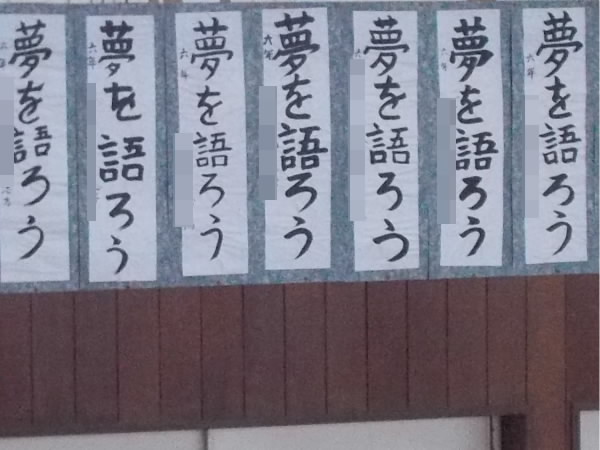 夢を語ろう
六年
夢を語ろう
六年
夢を語ろう
六
夢を語ろう
六年
夢を語ろう
六年
夢を語ろう
六年
夢を語ろう
六年